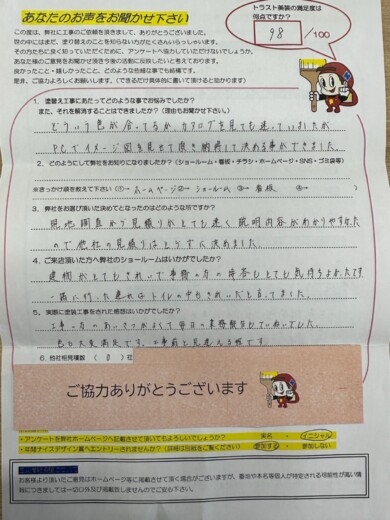 あなたのお声をお聞かせ下さい
トラスト美装の満足度は
何点ですか?
98 /100
この度は、弊社に工事のご依頼を頂きまして、ありがとうございました。
世の中にはまだ、塗り替えのことを知らない方がたくさんいらっしゃいます。
その方たちに良く知っていただくために、アンケートへ協力していただけないでしょうか。
あなた様のご意見をお聞かせ頂き今後の活動に反映したいと考えております。
良かったこと・嬉しかったこと、どのような些細な事でも結構です。
是非、ご協力よろしくお願いします。(できるだけ具体的に書いて頂けると助かります)
1. 塗替え工事にあたってどのような事でお悩みでしたか?
また、それを解消することはできましたか?(理由もお聞かせ下さい)
どういう色が合ってるか カタログを見ても迷っていましたが
PCでイメージ図を見せて頂き納得して決める事ができました。
2. どのようにして弊社をお知りになりましたか?(ショールーム・看板・チラシ・ホームページ・SNS・ゴミ袋等)
※きっかけ順を教えて下さい(①→ ホームページ ②→ ショールーム ③→ 看板 ④→ )
3. 弊社をお選び頂いた決めてとなったのはどのような所ですか?
現地調査から見積りがとても速く 説明内容がわかりやすかった
ので他社の見積りはとらずに決めました。
4. ご来店頂いた方へ弊社のショールームはいかがでしたか?
建物がとてもきれいで事務の方の接客もとても気持ちよかったです
一緒に行った連れはトイレの中もきれいだと言ってました。
5. 実際に塗装工事をされた感想はいかがでしたか?
工事の方のあいさつがよくて毎日の業務報告もていねいでした。
色も大変満足です。工事前と見違える程です。
6. 他社相見積数 ( 0 )社
ご協力ありがとうございます
・アンケートを弊社ホームページへ記載させて頂いてもよろしいでしょうか? 実名 ・ イニシャル
・年間ナイスデザイン賞へエントリーされますか?(詳細は別紙をご覧ください) 参加する ・ 参加しない
お客様より頂いたご意見はホームページ等に掲載させて頂く場合がございますが、番地や本名等個人が特定される可能性が高い情
報につきましては一切口外及び掲載致しませんのでご安心下さい。